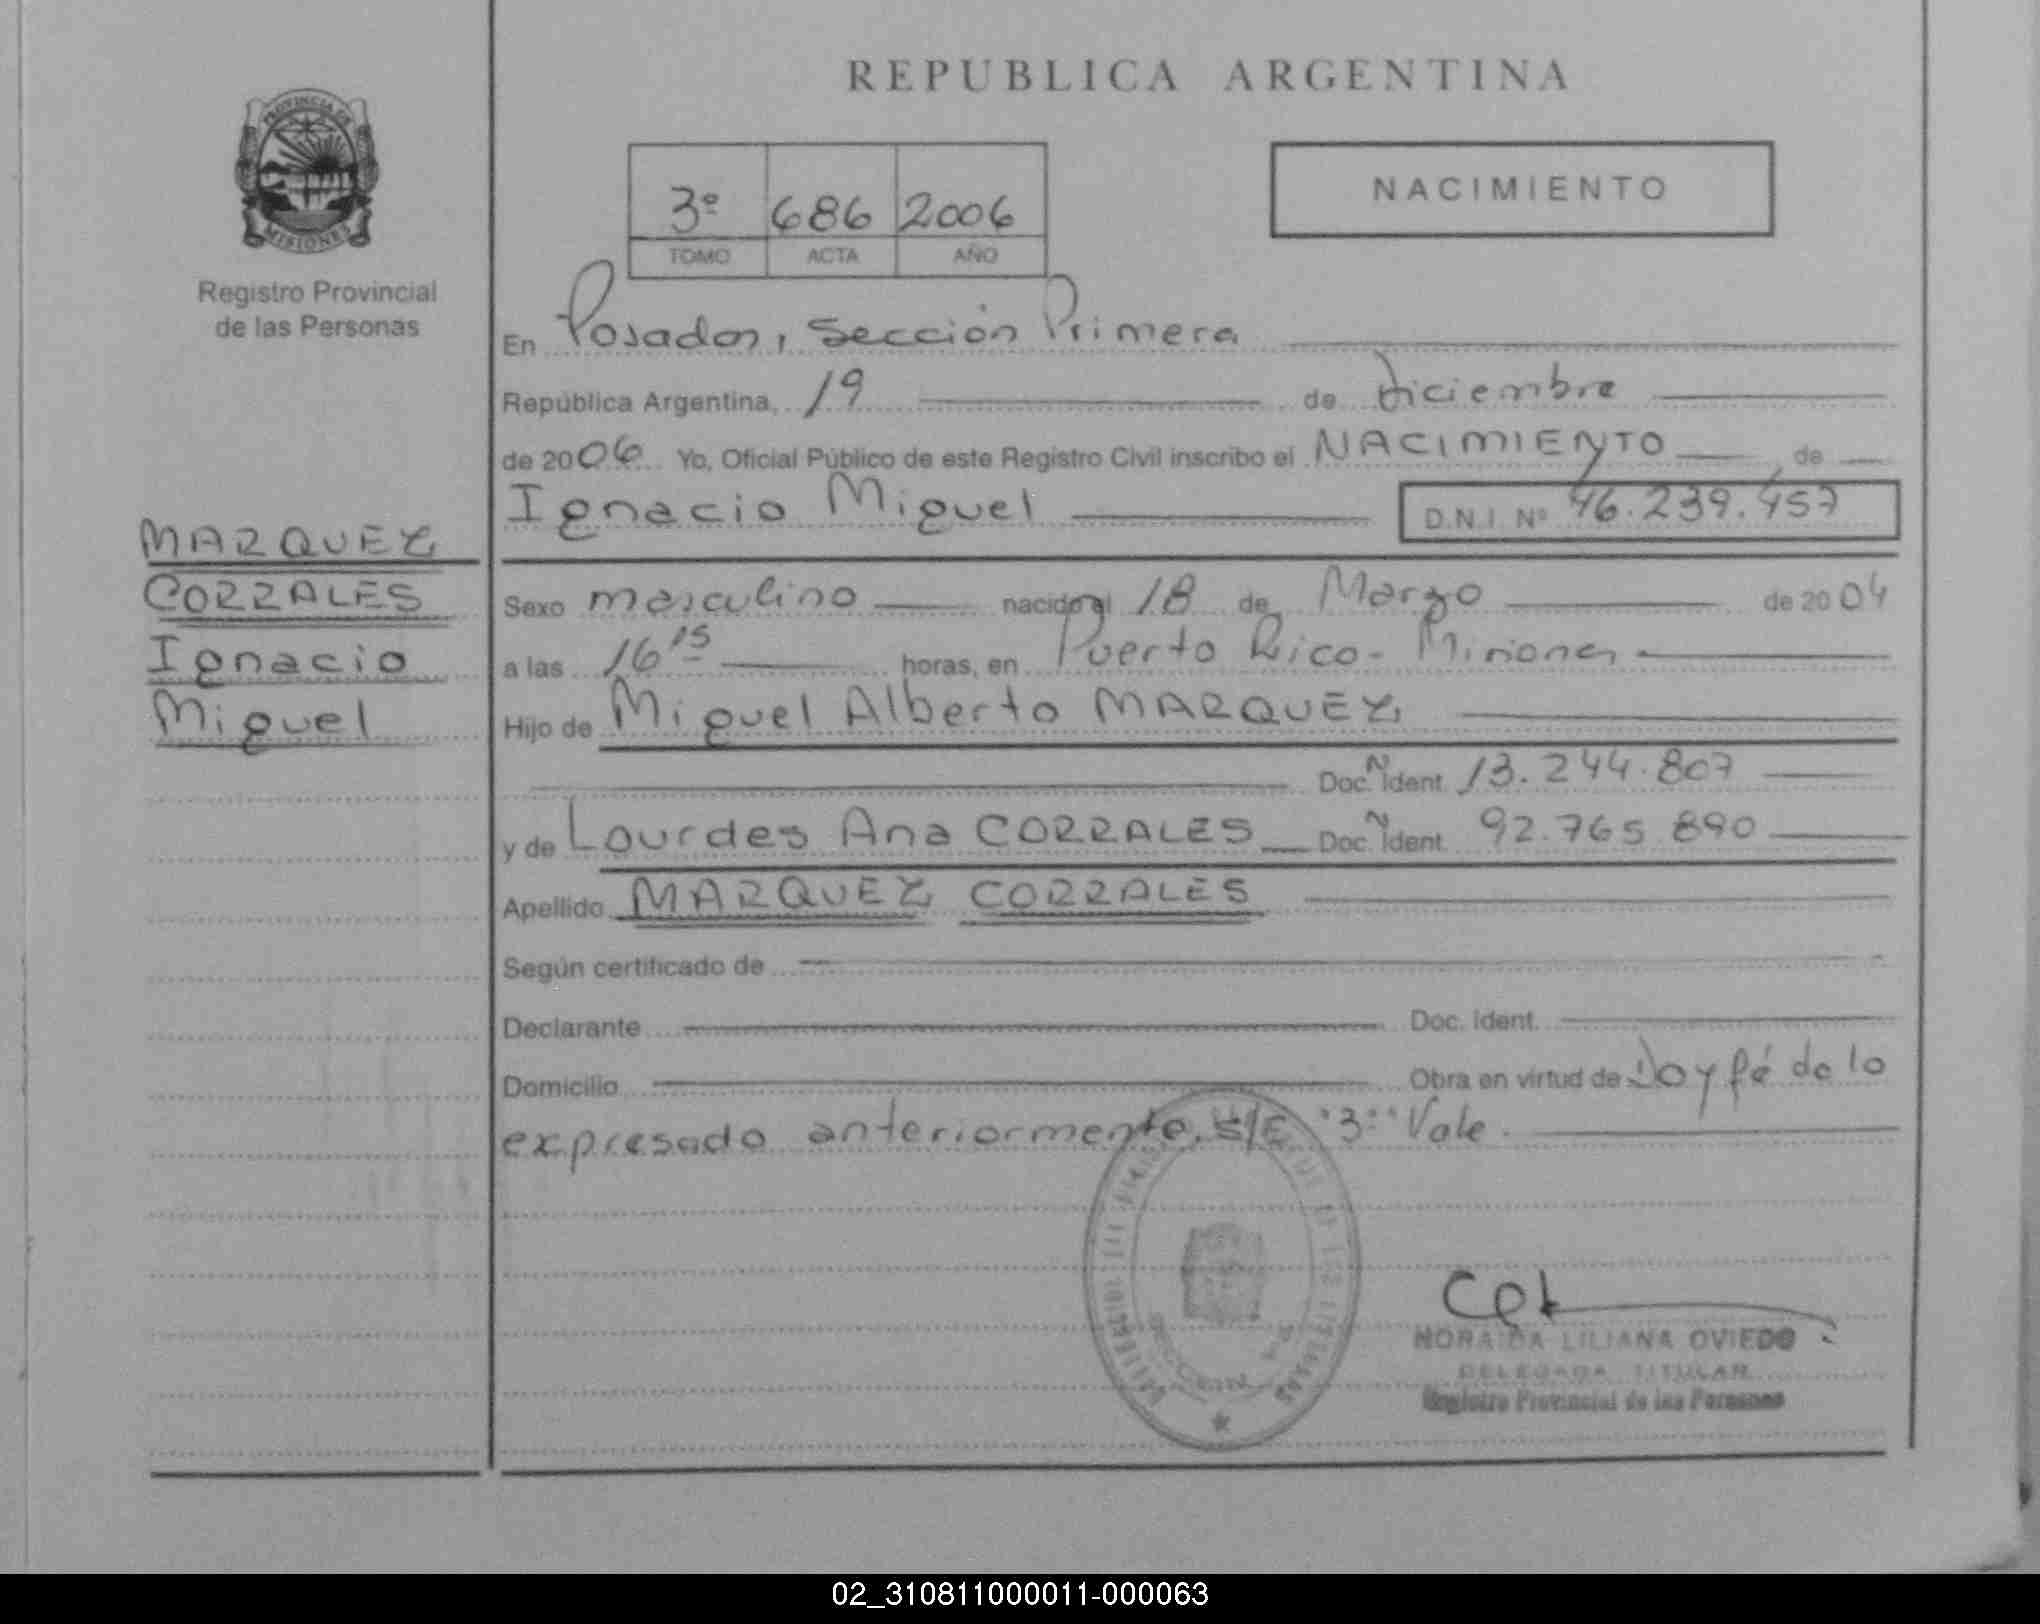 REPUBLICA ARGENTINA
PROVINCIA DE
MISIONES
Registro Provincial
de las Personas
3º 686 2006
TOMO ACTA AÑO
NACIMIENTO
En Posadas, Sección Primera
República Argentina, 19 de Diciembre
de 2006 Yo, Oficial Público de este Registro Civil inscribo el NACIMIENTO de
Ignacio Miguel D.N.I. Nº 46.239.457
MARQUEZ
CORRALES
Ignacio
Miguel
Sexo masculino nacido el 18 de Marzo de 2004
a las 16 15 horas, en Puerto Rico - Misiones
Hijo de Miguel Alberto MARQUEZ
Doc. Nº Ident. 13.244.807
y de Lourdes Ana CORRALES Doc. Nº Ident. 92.765.890
Apellido MARQUEZ CORRALES
Según certificado de
Declarante Doc. Ident.
Domicilio Obra en virtud de Doy fé de lo
expresado anteriormente. S/E "3º" Vale
SECCION
NORAIDA LILIANA OVIEDO
DELEGADA TITULAR
Registro Provincial de las Personas
02_310811000011-000063